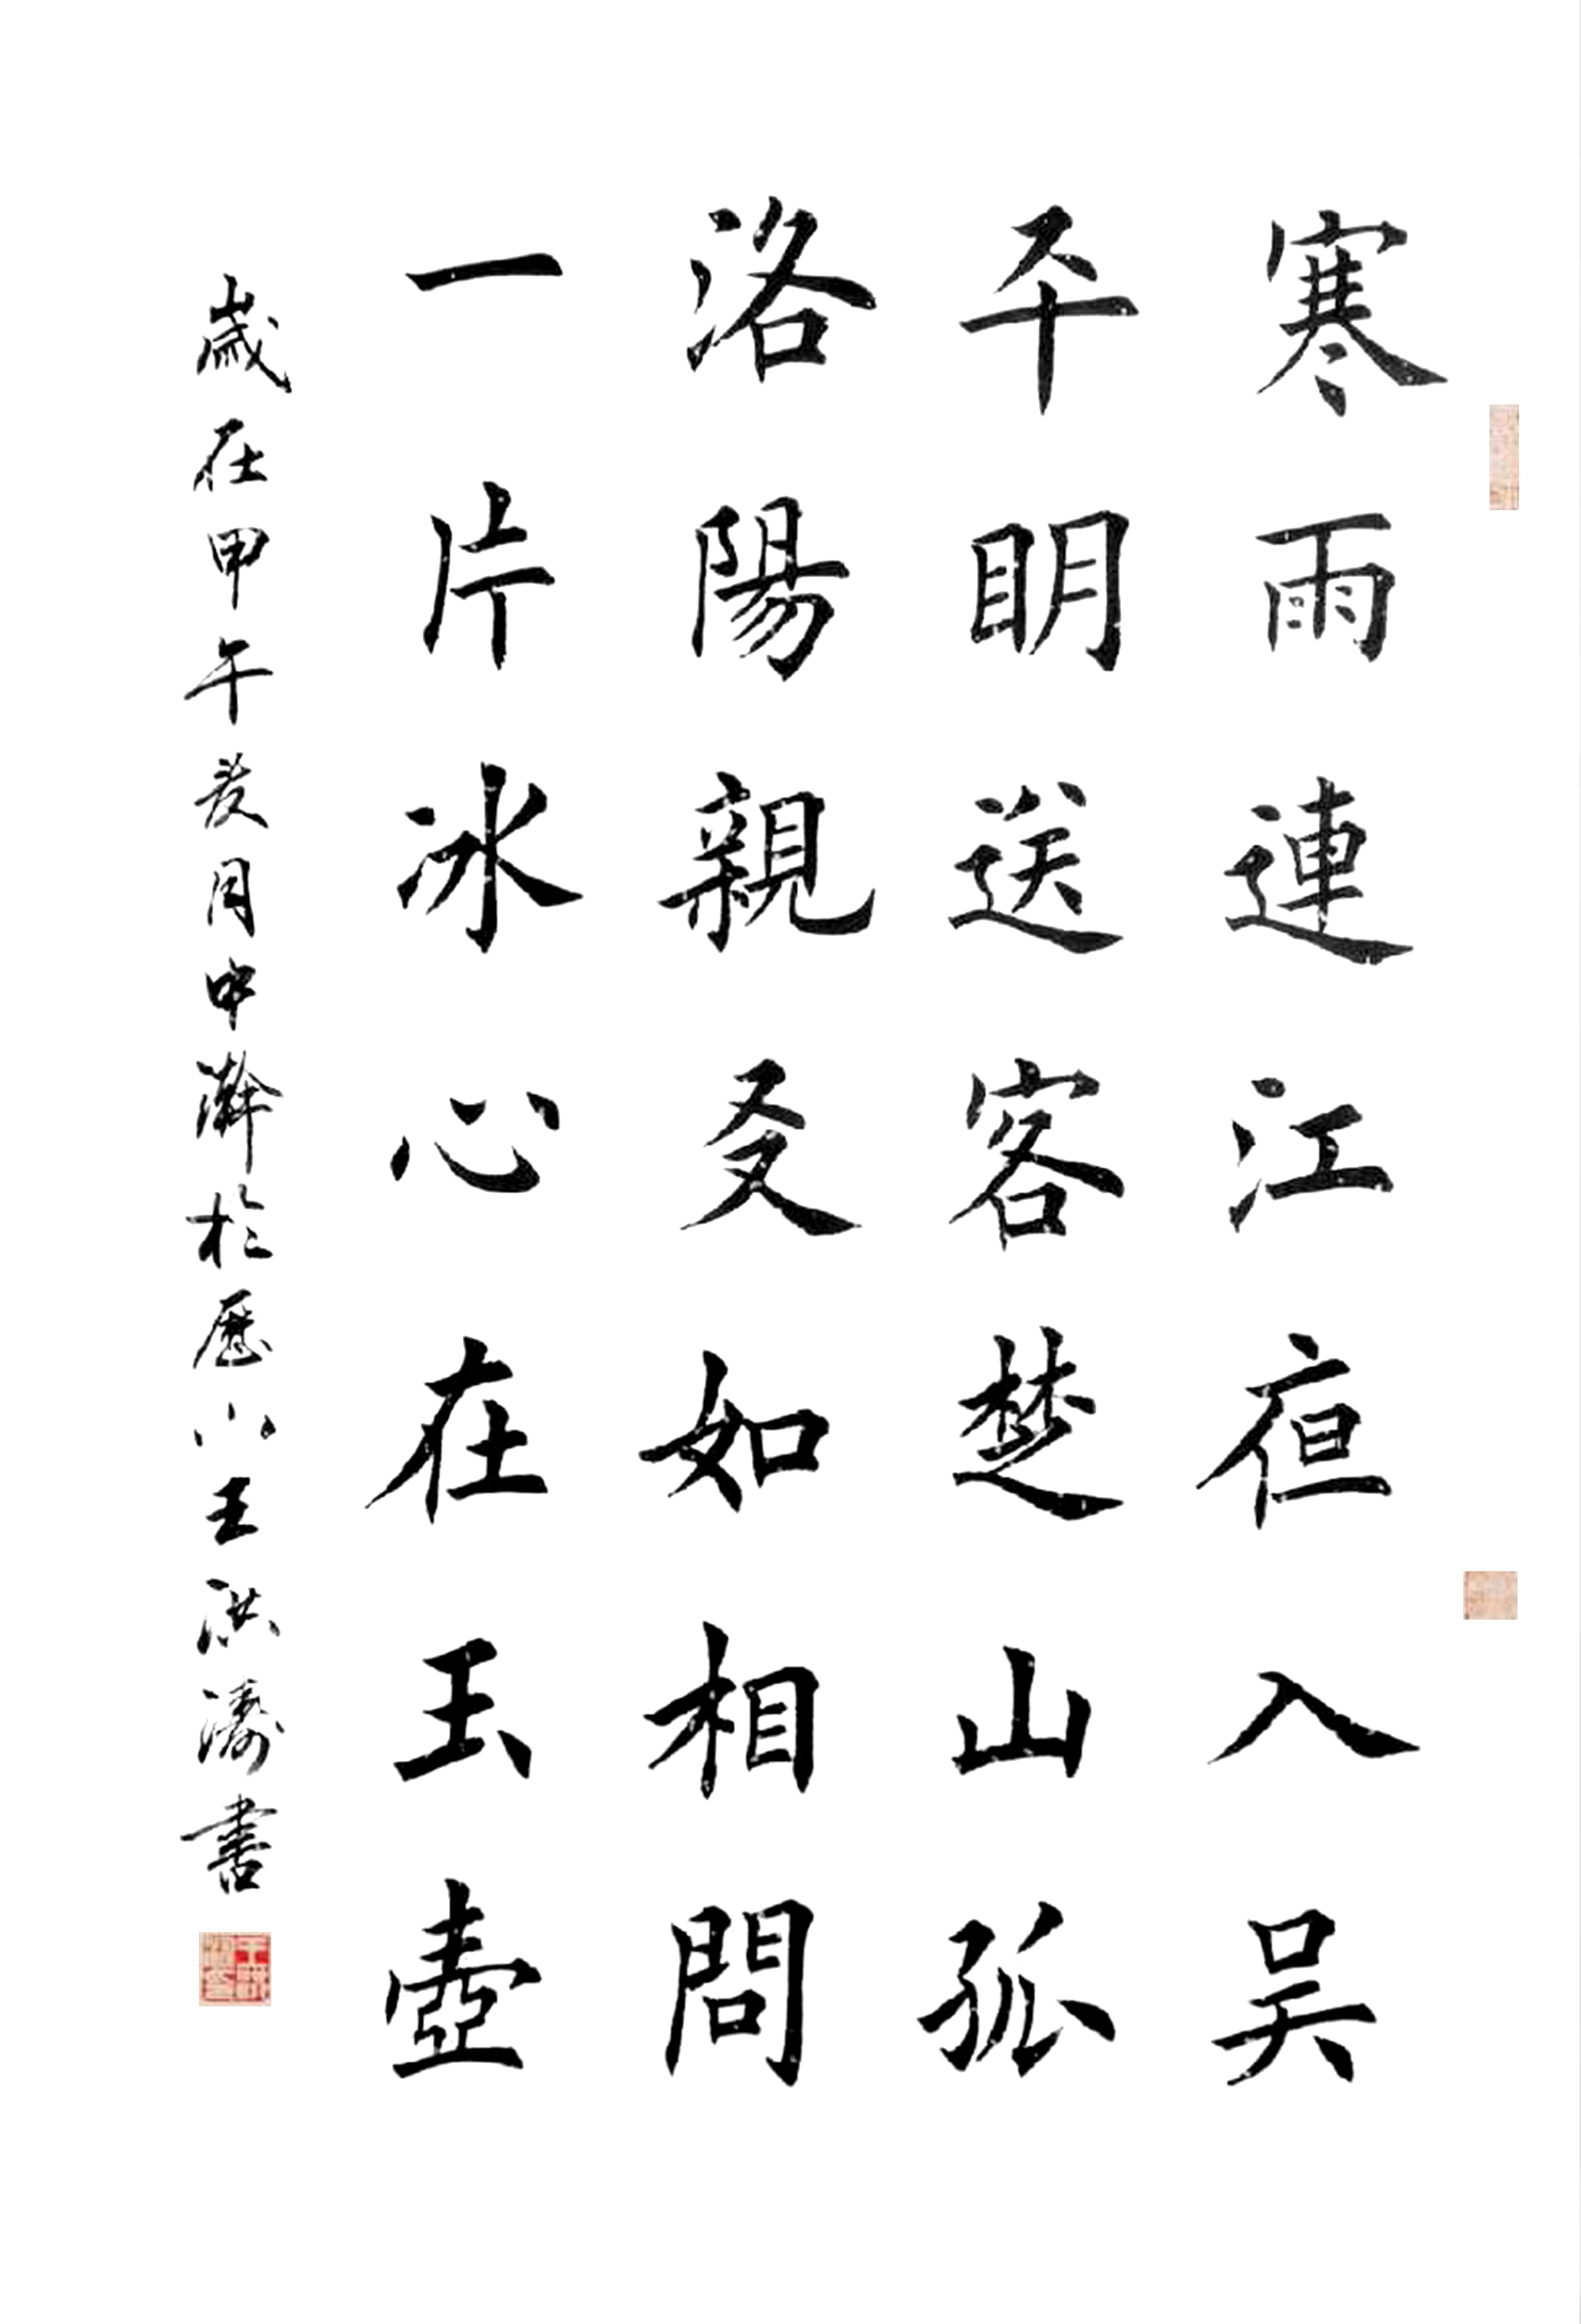 寒雨連江夜入吴
平明送客楚山孤
洛陽親友如相問
一片冰心在玉壺
歲在甲午癸月中澣於歷山王洪濤書